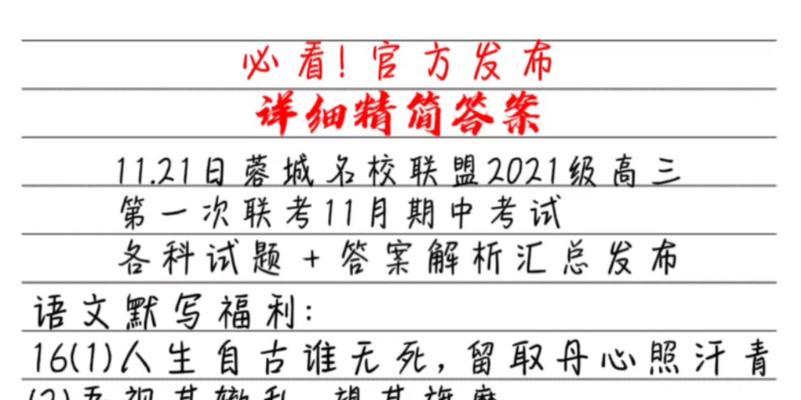 必看!官方发布
详细精简答案
11.21日蓉城名校联盟2021级高三
第一次联考11月期中考试
各科试题+答案解析汇总发布
语文默写福利:
16(1)人生自古谁无死,留取丹心照汗青
(2)吾视其辙乱,望其旗靡